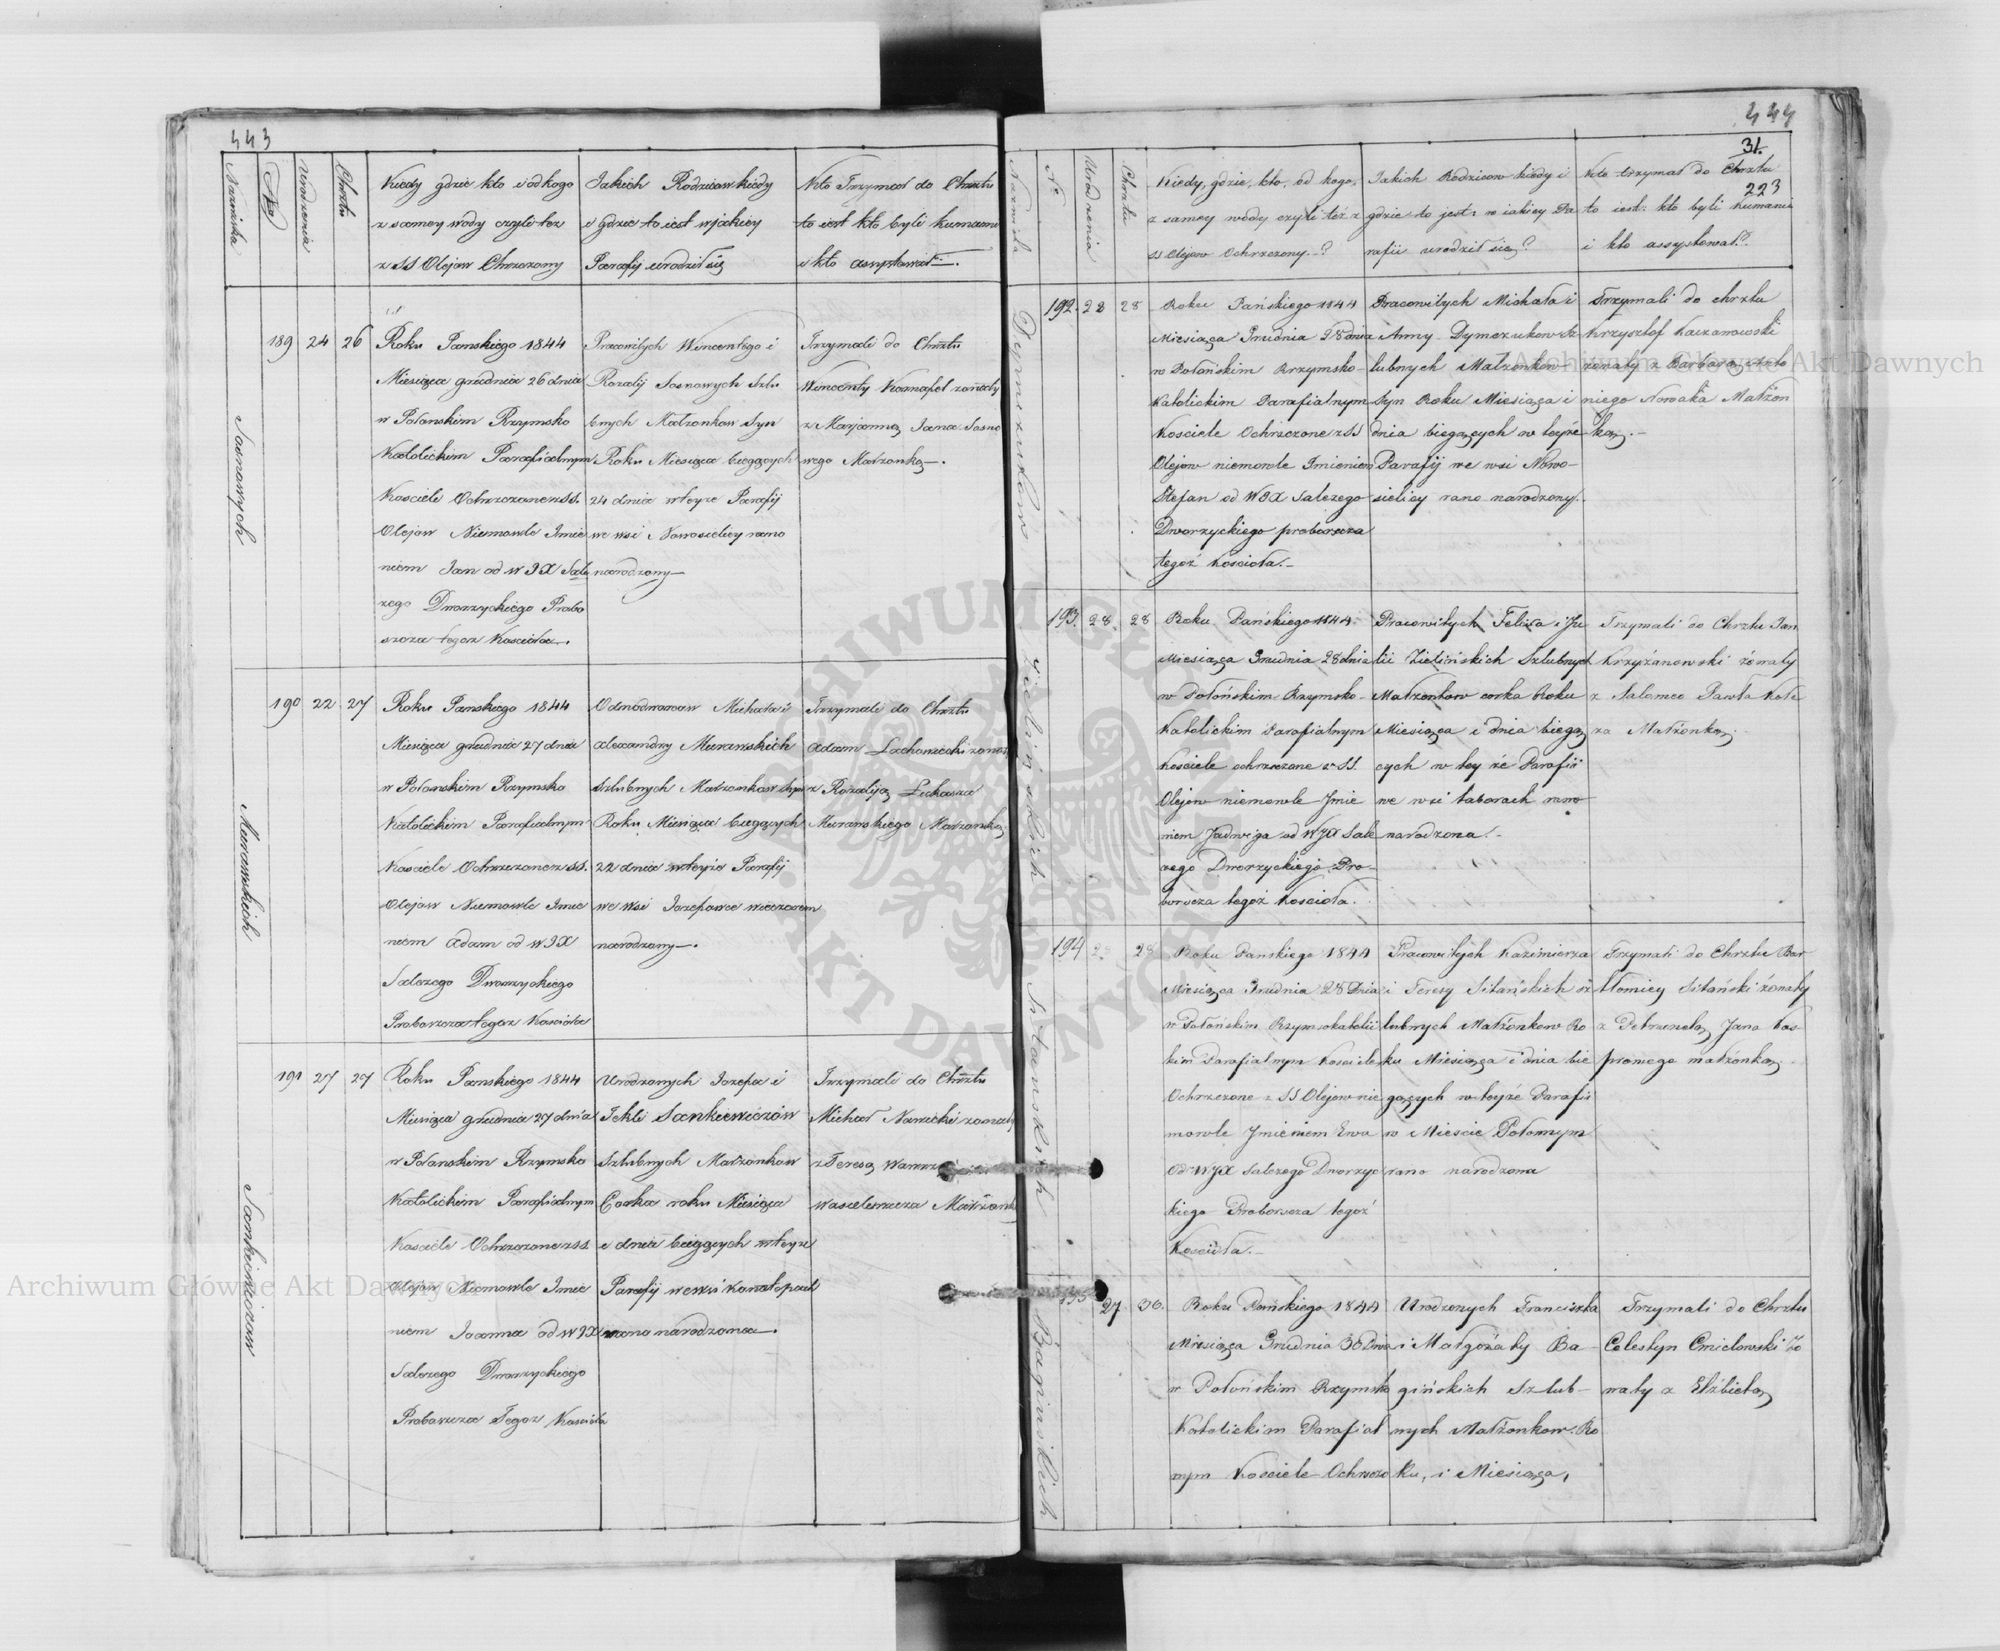 443
Nazwiska
No
Urodzenia
Chrztu
Kiedy gdzie kto i od kogo
z samey wody czyli też
z SS Olejow Chrzczony
Jakich Rodzicow kiedy
i gdzie to iest w jakiey
Parafij urodził się
Kto Trzymał do Chrztu
to iest kto byli kumami
i kto assystował.
Sosnowych
189 24 26
Roku Panskiego 1844
Miesiąca grudnia 26 dnia
w Połonskim Rzymsko
Katolickim Parafialnym
Kosciele Ochrzczone z SS.
Olejow Niemowle Imie
niem Jan od W JX Sale
zego Dworzyckiego Probo
szcza tegoz Kosciola.
Pracowitych Wincentego i
Rozalij Sosnowych Szlu
bnych Małzonkow Syn
Roku Miesiąca bieżących
24 dnia w teyze Parafij
we wsi Nowosielicy rano
narodzony
Trzymali do Chrztu
Wincenty Koznafel zonaty
z Marjanną Jana Sosno
wego Małzonką.
Murawskich
190 22 27
Roku Panskiego 1844
Miesiąca grudnia 27 dnia
w Połonskim Rzymsko
Katolickim Parafialnym
Kosciele Ochrzczone z SS.
Olejow Niemowle Imie
niem Adam od W JX
Salezego Dworzyckiego
Proboszcza tegoz Kosciola
Odnodworcow Michała i
Alexandry Murawskich
Szlubnych Małzonkow Syn
Roku Miesiąca bieżących
22 dnia w teyże Parafij
we Wsi Jozefowce wieczorem
narodzony.
Trzymali do Chrztu
Adam Lachowiecki zonaty
z Rozalją Łukasza
Murawskiego Małzonką
Sankiewiczow
191 27 27
Roku Panskiego 1844
Miesiąca grudnia 27 dnia
w Połonskim Rzymsko
Katolickim Parafialnym
Kosciele Ochrzczone z SS.
Olejow Niemowle Imie
niem Joanna od W JX
Salezego Dworzyckiego
Proboszcza Tegoz Kosciola
Urodzonych Jozefa i
Tekli Sankiewiczów
Szlubnych Małzonkow
Corka roku Miesiąca
i dnia bieżących w teyze
Parafij we wsi Konotopach
rano narodzona.
Trzymali do Chrztu
Michał Nawrocki zonaty
z Teresą
Wasielewicza Małżonk
444
31.
223
Nazwiska
No
Urodzenia
Chrztu
Kiedy, gdzie, kto, od kogo,
z samey wody czyli też z
SS Olejow Ochrzczony.?
Jakich Rodzicow kiedy i
gdzie to jest: w iakiey Pa
rafii urodził się?
Kto trzymał do Chrztu
to iest: kto byli Kumami
i kto assystował?.
Dymczukow
192. 28 28
Roku Pańskiego 1844
Miesiąca Grudnia 28 dnia
w Połońskim Rzymsko-
Katolickim Parafialnym
Kosciele Ochrzczone z SS
Olejow niemowle Imieniem
Stefan od WJX Salezego
Dworzyckiego proboszcza
tegoż Kościoła.
Pracowitych Michała i
Anny Dymczukow Sz
lubnych Małzonkow
Syn Roku Miesiąca i
dnia bieżących w teyże
Parafij we wsi Nowo-
sielicy rano narodzony.
Trzymali do chrztu
Krzysztof Kaczanowski
zonaty z Barbarą
niego Nowaka Małżon
ką.
Zielinskich
193. 28. 28
Roku Pańskiego 1844
Miesiąca Grudnia 28 dnia
w Połońskim Rzymsko-
Katolickim Parafialnym
Kosciele ochrzczone z SS.
Olejow niemowle Jmie
niem Jadwiga od WJX Sale
zego Dworzyckiego Pro-
boszcza tegoż Kosciola.
Pracowitych Felixa i Ju
lii Zielińskich Szlubnych
Małzonkow corka Roku
Miesiąca i dnia bieżą
cych w tey że Parafii
we wsi Taborach rano
narodzona.
Trzymali do Chrztu Jan
Krzyżanowski żonaty
z Salomeą Pawła Kole
za Małżonką.
Sitanskich
194 28 28
Roku Panskiego 1844
Miesiąca Grudnia 28 Dnia
w Połońskim Rzymskokatolic
kim Parafialnym Kosciele
Ochrzczone z SS Olejow nie
mowle Jmieniem Ewa
od WJX Salezego Dworzyc
kiego Proboszcza tegoż
Kościoła.
Pracowitych Kazimierza
i Teresy Sitańskich sz
lubnych Małżonkow Ro
ku Miesiąca i dnia bie
gących w teyże Parafii
w Mieście Połonnym
rano narodzona
Trzymali do Chrztu Bar
tłomiey Sitański żonaty
z Petrunelą Jana Kas
proniego małżonką.
Baginskich
195 27. 30.
Roku Pańskiego 1844
Miesiąca Grudnia 30 Dnia
w Połońskim Rzymsko
Katolickim Parafial
nym Kosciele Ochrzczo
Urodzonych Franciszka
i Małgorzaty Ba-
gińskich Szlub-
nych Małżonkow. Ro
ku, i Miesiąca,
Trzymali do Chrztu
Celestyn Cmielowski żo
naty z Elżbietą
Archiwum Główne Akt Dawnych
Archiwum Główne Akt Dawnych
ARCHIWUM GŁÓWNE AKT DAWNYCH